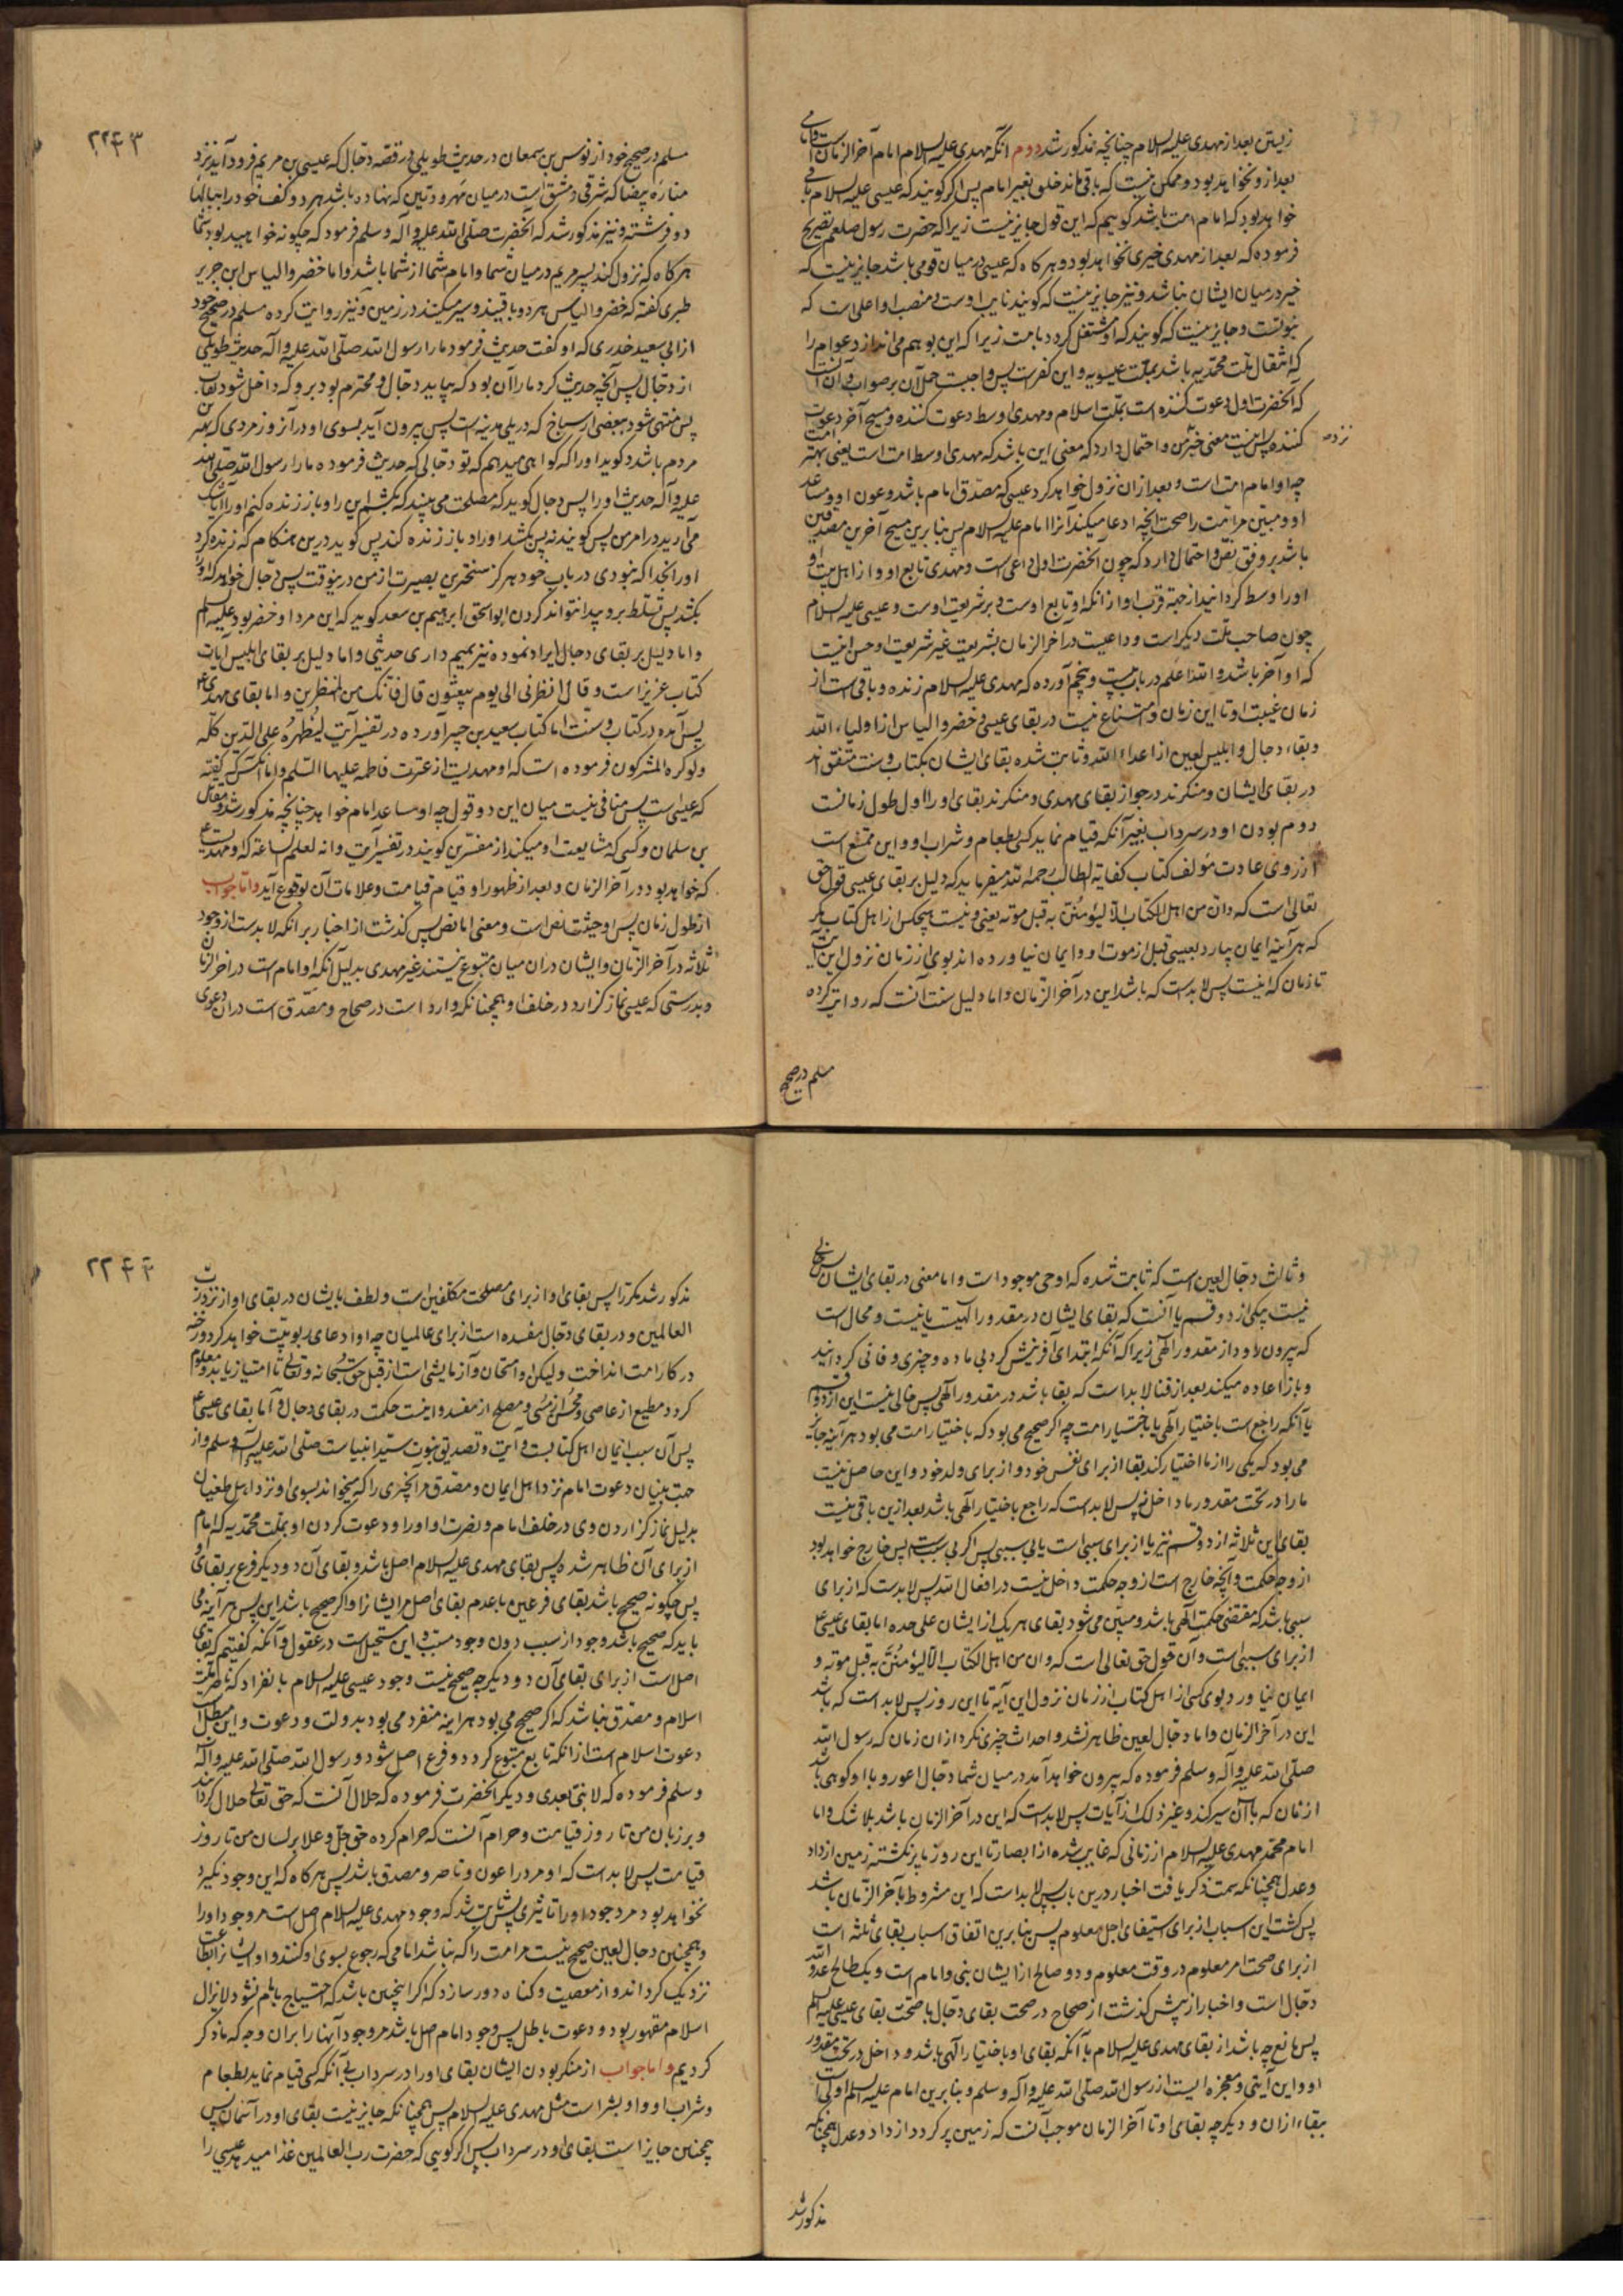 زیستن بعد از مهدی علیه السلام چنانچه مذکور شد دوم آنکه مهدی علیه السلام امام آخر الزمان است و امامی
بعد از و نخواهد بود و ممکن نیست که باقی ماند خلق بغیر امام پس اگر گویند که عیسی علیه السلام باقی
خواهد بود که امام امت باشد گوییم که این قول جایز نیست زیرا که حضرت رسول صلعم تصریح
فرموده که بعد از مهدی خیری نخواهد بود و هرگاه که عیسی در میان قومی باشد جایز نیست که
خیر در میان ایشان نباشد و نیز جایز نیست که گویند نایب اوست و منصب او اعلی است که
بنوتست و جایز نیست که گویند که او مستقل گردد بامت زیرا که این بوهم می اندازد عوام را
که انتقال ملت محمدیه باشد بملت عیسویه و این کفر است پس واجبست حمل آن بر صواب و آن آنست
که آنحضرت اول دعوت کننده است بملت اسلام و مهدی اوسط دعوت کننده و مسیح آخر دعوت
کننده پس اینست معنی خبر نزد من و احتمال دارد که معنی این باشد که مهدی اوسط امت است یعنی بهتر امت
چه او امام امت است و بعد ازان نزول خواهد کرد عیسی که مصدق امام باشد و عون او و مساعد
او و مبین مر امت را صحت آنچه ادعا میکند آنرا امام علیه السلام پس بنابرین مسیح آخرین مصدقین
باشد بر وفق نص و احتمال دارد که چون آنحضرت اول داعی است و مهدی تابع او و از اهل بیت او
او را وسط گردانید از جهة قرب او از آنکه او تابع اوست و بر شریعت اوست و عیسی علیه السلام
چون صاحب ملت دیگر است و داعیست در آخر الزمان بشریعت غیر شریعت او حسن اینست
که او آخر باشد و الله اعلم در باب بیست و پنجم آورده که مهدی علیه السلام زنده و باقی است از
زمان غیبت او تا این زمان و امتناع نیست در بقای عیسی و خضر و الیاس از اولیاء الله
و بقاء دجال و ابلیس لعین از اعداء الله و ثابت شده بقای ایشان بکتاب و سنت متفق اند
در بقای ایشان و منکرند در جواز بقای مهدی و منکرند بقای او را اول طول زمانست
دوم بودن او در سرداب بغیر آنکه قیام نماید کسی بطعام و شراب او و این ممتنع است
از روی عادت مؤلف کتاب کفایه الطالب رحمه الله میفرماید که دلیل بر بقای عیسی قول حق
تعالی است که و ان من اهل الکتاب الا لیؤمنن به قبل موته یعنی و نیست هیچکس از اهل کتاب مگر
که هر آینه ایمان بیارد بعیسی قبل از موت او و ایمان نیاورده اند بوی از زمان نزول این آیت
تا زمان که اینست پس لابدست که باشد این در آخر الزمان و اما دلیل سنت آنست که روایت کرده
مسلم در صحیح
۲۲۴۳
مسلم در صحیح خود از نوس بن سمعان در حدیث طویلی در قصه دجال که عیسی بن مریم فرود آید نزد
مناره بیضا که شرقی دمشق است در میان مهرودتین که بنهاده باشد هر دو کف خود را ببالهای
دو فرشته و نیز مذکور شد که آنحضرت صلی الله علیه و آله وسلم فرمود که چگونه خواهید بود شما
هرگاه که نزول کند پسر مریم در میان شما و امام شما از شما باشد و اما خضر و الیاس ابن جریر
طبری گفته که خضر و الیاس هر دو باقیند و سیر میکنند در زمین و نیز روایت کرده مسلم در صحیح خود
از ابی سعید خدری که او گفت حدیث فرمود ما را رسول الله صلی الله علیه و آله حدیث طویلی
از دجال پس آنچه حدیث کرد ما را آن بود که بیاید دجال و محترم بود برو که داخل شود نقاب
پس منتهی شود ببعضی از سباخ که در پلی مدینه است پس بیرون آید بسوی او در آنروز مردی که بهترین
مردم باشد و گوید او را که گواهی میدهم که تو دجالی که حدیث فرموده ما را رسول الله صلی الله
علیه و آله حدیث او را پس دجال گوید که مصلحت می بینید که بکشم این را و باز زنده کنم او را آیا شک
می آرید در امر من پس گویند نه پس بکشد او را و باز زنده کند پس گوید درین هنگام که زنده کرد
او را بخدا که نبودی در باب خود هرگز سختترین بصیرت از من درینوقت پس دجال خواهد که او را
بکشد پس تسلط برو پیدا نتواند کردن ابو اسحق ابرهیم بن سعد گوید که این مرد او خضر بود علیه السلام
و اما دلیل بر بقای دجال ایراد نموده نیز تمیم داری حدیثی و اما دلیل بر بقای ابلیس آیات
کتاب عزیز است و قال انظرنی الی یوم یبعثون قال فانک من المنظرین و اما بقای مهدی ع
پس آمده در کتاب و سنت اما کتاب سعید بن جبیر آورده در تفسیر آیت لیظهره علی الدین کله
ولو کره المشرکون فرموده است که او مهدیست از عترت فاطمه علیها السلم و اما آنکس که گفته
که عیسی است پس منافی نیست میان این دو قول چه او مساعد امام خواهد چنانچه مذکور شد و مقاتل
بن سلمان و کسی که مشایعت او میکند از مفسرین گویند در تفسیر آیت و انه لعلم للساعة که و مهدیست ع
که خواهد بود در آخر الزمان و بعد از ظهور او قیام قیامت و علامات آن بوقوع آید و اما جواب
از طول زمان پس از حیثیت نص است و معنی اما نص پس گذشت از اخبار بر آنکه لابدست از وجود
ثلاثه در آخر الزمان و ایشان دران میان متبوع نیستند غیر مهدی بدلیل آنکه او امام است در اخر الزمان
و بدرستی که عیسی نماز گزارد در خلف او همچنانکه وارد است در صحاح و مصدق است دران دعوی
و ثالث دجال لعین است که ثابت شده که او حی موجود است و اما معنی در بقای ایشان پس خالی
نیست یکی از دو قسم یا آنست که بقای ایشان در مقدور الهیت یا نیست و محال است
که بیرون رود از مقدور الهی زیرا که آنکه ابتدای آفرینش کرد بی ماده و چیزی و فانی گردانید
و باز اعاده میکند بعد از فنا لابد است که بقا باشد در مقدور الهی پس خالی نیست این از دو قسم
یا آنکه راجع است باختیار الهی یا باختیار امت چه اگر صحیح می بود که باختیار امت می بود هر آینه جایز
می بود که یکی را از ما اختیار کند بقا از برای نفس خود و از برای ولد خود و این حاصل نیست
ما را در تحت مقدور ما داخل نه پس لابدست که راجع باختیار الهی باشد بعد ازین باقی نیست
بقای این ثلاثه از دو قسم نیز یا از برای سببی است یا بی سببی پس اگر بی سببست پس خارج خواهد بود
از وجه حکمت و آنچه خارج است از وجه حکمت داخل نیست در افعال الله پس لابدست که از برای
سببی باشد که مقتضی حکمت الهی باشد و مبین می شود بقای هر یک از ایشان علی حده اما بقای عیسی ع
از برای سببی است و آن قول حق تعالی است که و ان من اهل الکتاب الا لیؤمنن به قبل موته و
ایمان نیاورد بوی کسی از اهل کتاب از زمان نزول این آیه تا این روز پس لابد است که باشد
این در آخر الزمان و اما دجال لعین ظاهر نشد و احداث چیزی نکرد ازان زمان که رسول الله
صلی الله علیه و آله وسلم فرموده که بیرون خواهد آمد در میان شما دجال اعور و با او کوهی باشد
از نان که با آن سیر کند و غیر ذلک از آیات پس لابدست که این در آخر الزمان باشد بلا شک و اما
امام محمد مهدی علیه السلام از زمانی که غایب شده از ابصار تا این روز پر نگشته زمین از داد
و عدل همچنانکه سمت ذکر یافت اخبار درین باب پس لابد است که این مشروط بآخر الزمان باشد
پس گشت این اسباب از برای استیفای اجل معلوم پس بنابرین اتفاق اسباب بقای ثلثه است
از برای صحت امر معلوم در وقت معلوم و دو صالح از ایشان نبی و امام است و یک طالح عدو الله
دجال است و اخبار از پیش گذشت از صحاح در صحت بقای دجال با صحت بقای عیسی علیه السلم
پس مانع چه باشد از بقای مهدی علیه السلام با آنکه بقای او باختیار الهی باشد و داخل در تحت مقدور
او و این آیتی و معجزه ایست از رسول الله صلی الله علیه و آله وسلم و بنابرین امام علیه السلم اولی است
ببقاء ازان و دیگر چه بقای او تا آخر الزمان موجب آنست که زمین پر گردد از داد و عدل همچنانکه
مذکور شد
۲۲۴۴
مذکور شد مکرر پس بقای او از برای مصلحت مکلفین است و لطف بایشان در بقای او از نزد رب
العالمین و در بقای دجال مفسده است از برای عالمیان چه او ادعای ربوبیت خواهد کرد و رخنه
در کار امت انداخت و لیکن او امتحان و آزمایشی است از قبل حق سبحانه و تعالی تا امتیاز یابد و معلوم
گردد مطیع از عاصی و محسن از مسی و مصلح از مفسد و اینست حکمت در بقای دجال و اما بقای عیسی ع
پس آن سبب ایمان اهل کتابست و آیت و تصدیق نبوت سید انبیاست صلی الله علیه و آله وسلم و از
جهت بنیان دعوت امام نزد اهل ایمان و مصدق مر آنچیزی را که میخواند بسوی او نزد اهل طغیان
بدلیل نماز گزاردن وی در خلف امام و نصرت او او را و دعوت کردن او بملت محمدیه که امام
از برای آن ظاهر شده پس بقای مهدی علیه السلام اصل باشد و بقای آن دو دیگر فرع بر بقای او
پس چگونه صحیح باشد بقای فرعین با عدم بقای اصل مر ایشانرا و اگر صحیح باشد این پس هر آینه می
باید که صحیح باشد وجود از سبب دون وجود مسبب و این مستحیل است در عقول و آنکه گفتیم که بقای
اصل است از برای بقای آن دو دیگر چه صحیح نیست وجود عیسی علیه السلام بانفراد که ناصر ملت
اسلام و مصدق نباشد که اگر صحیح می بود هر اینه منفرد می بود بدولت و دعوت و این مبطل
دعوت اسلام است از آنکه تابع متبوع گردد و فرع اصل شود و رسول الله صلی الله علیه و آله
وسلم فرموده که لا نبی بعدی و دیگر آنحضرت فرموده که حلال آنست که حق تعالی حلال گرداند
و بر زبان من تا روز قیامت و حرام آنست که حرام کرده حق جل و علا بر لسان من تا روز
قیامت پس لابد است که او مر او را عون و ناصر و مصدق باشد پس هرگاه که این وجود نگیرد
نخواهد بود مر وجود او را تاثیری پس ثابت شد که وجود مهدی علیه السلام اصل است مر وجود او را
و همچنین دجال لعین صحیح نیست مر امت را که نباشد امامی که رجوع بسوی او کنند و او ایشانرا بطاعت
نزدیک گرداند و از معصیت و گناه دور سازد که اگر اینچنین باشد که احتیاج بامام نشود لایزال
اسلام مقهور بود و دعوت باطل پس وجود امام اصل باشد مر وجود آنها را بران وجه که ما ذکر
کردیم و اما جواب از منکر بودن ایشان بقای او را در سرداب بی آنکه کسی قیام نماید بطعام
و شراب او و او بشر است مثل مهدی علیه السلام پس همچنانکه جایز نیست بقای او در آسمان پس
همچنین جایز است بقای او در سرداب پس اگر گویی که حضرت رب العالمین غذا میدهد عیسی را